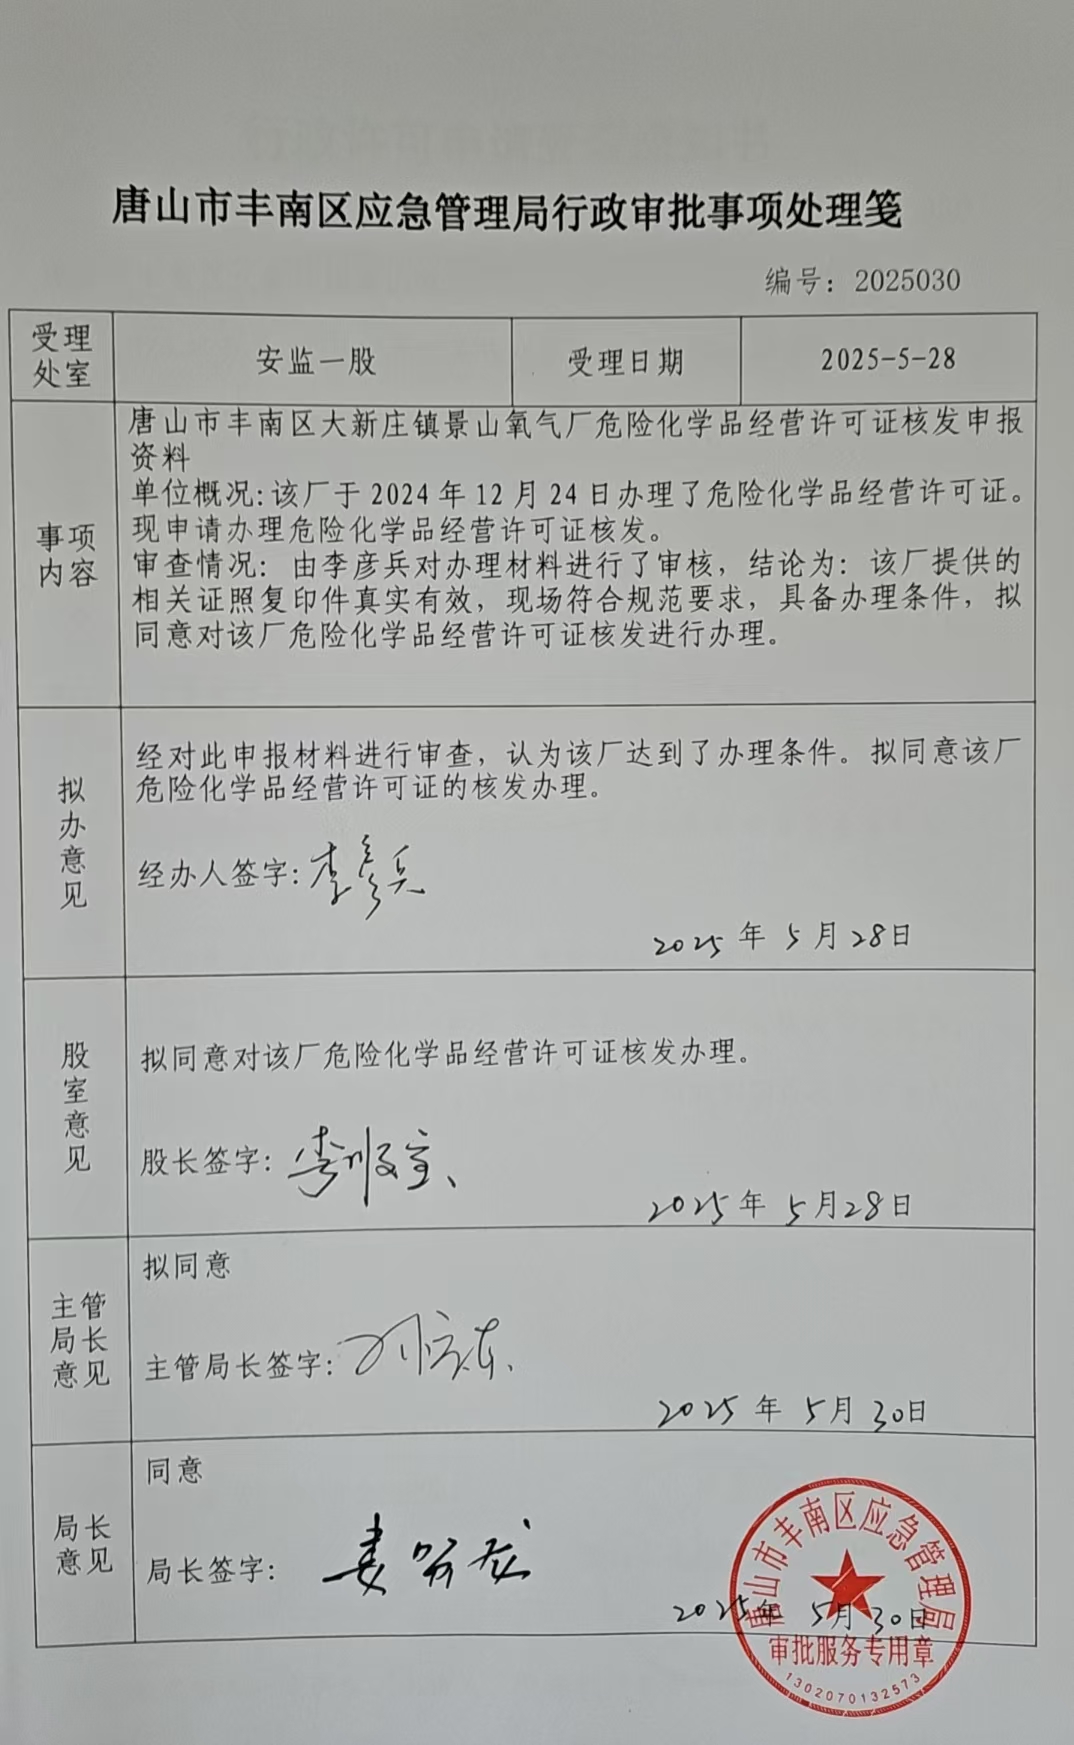 唐山市丰南区应急管理局行政审批事项处理笺
编号：2025030
受理处室
安监一股
受理日期
2025-5-28
事项内容
唐山市丰南区大新庄镇景山氧气厂危险化学品经营许可证核发申报
资料
单位概况：该厂于 2024 年 12 月 24 日办理了危险化学品经营许可证。
现申请办理危险化学品经营许可证核发。
审查情况：由李彦兵对办理材料进行了审核，结论为：该厂提供的
相关证照复印件真实有效，现场符合规范要求，具备办理条件，拟
同意对该厂危险化学品经营许可证核发进行办理。
拟办意见
经对此申报材料进行审查，认为该厂达到了办理条件。拟同意该厂
危险化学品经营许可证的核发办理。
经办人签字：李彦兵
2025 年 5 月 28 日
股室意见
拟同意对该厂危险化学品经营许可证核发办理。
股长签字：
2025 年 5 月 28 日
主管局长意见
拟同意
主管局长签字：
2025 年 5 月 30 日
局长意见
同意
局长签字：
2025 年 5 月 30 日
唐山市丰南区应急管理局
审批服务专用章
1302070132573